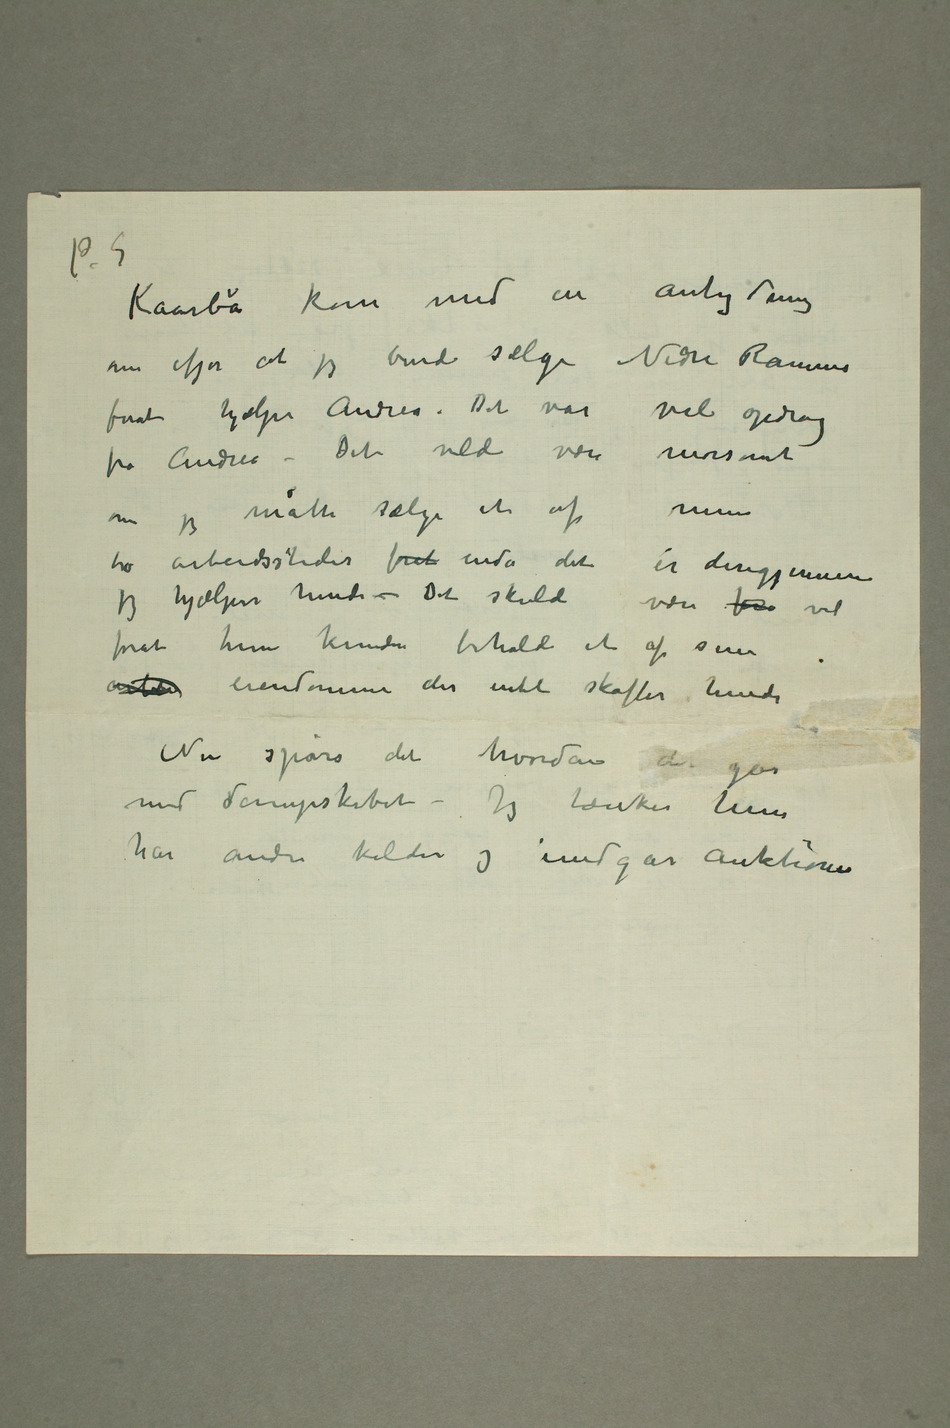 P. S
Kaarbø kom med en antydning
om ifjor at jeg burde sælge Nedre Ramme
forat hjælpe Andrea. Det var vel opdrag
fra Andrea – Det vilde være morsomt
om jeg måtte sælge et af mine
to arbeidssteder fort enda det er derigjennem
jeg hjælper hende – Det skulde være for vel
forat hun kunde beholde et af sine
eiendomme der intet skaffer hende
Nu spørs det hvordan det går
med dampskibet – Jeg tænker hun
har andre kilder og undgår auktione